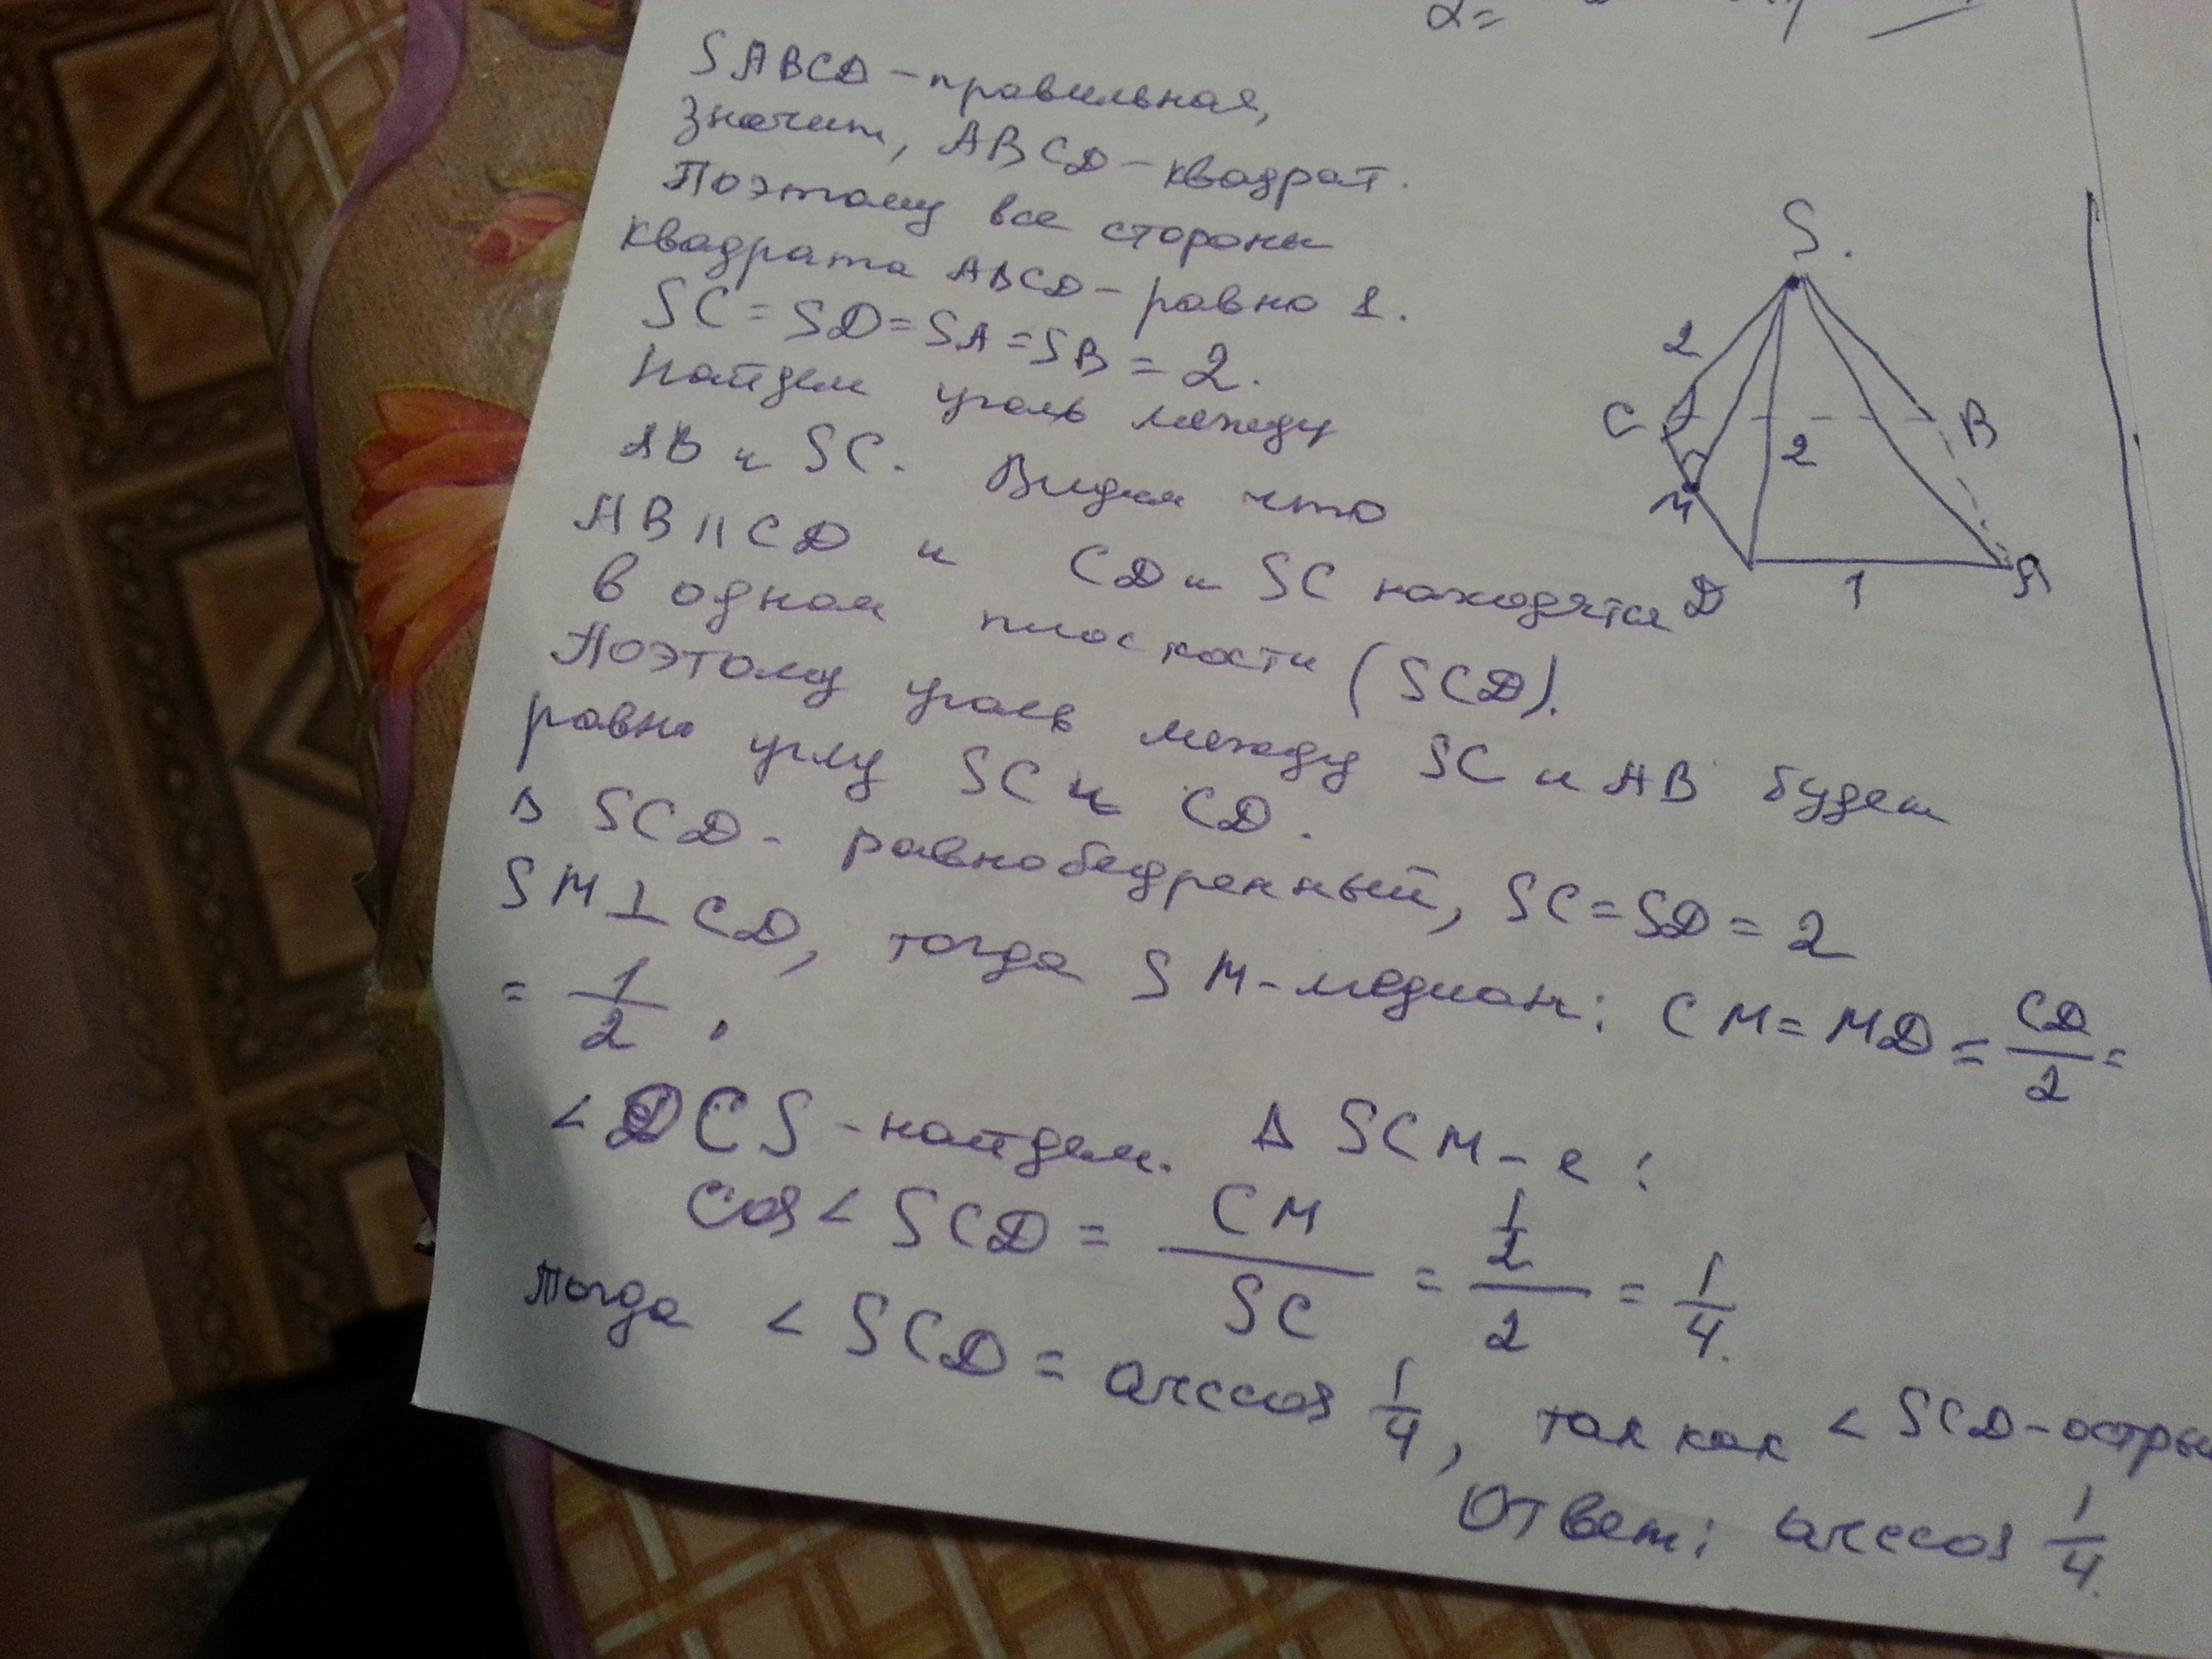 α=
SABCD – правильная,
значит, ABCD – квадрат.
Поэтому все стороны
квадрата ABCD – равно 1.
SC = SD = SA = SB = 2.
Найдем угль между
AB и SC. Видим что
AB || CD и CD и SC находятся
в одном плоскости (SCD).
Поэтому угль между SC и AB будем
равно углу SC и CD.
Δ SCD - равнобедренный, SC = SD = 2
SM ⊥ CD, тогда SM - медиан: CM = MD = CD/2 =
= 1/2.
< DCS - найдем. Δ SCM - е :
cos < SCD = CM/SC = 1/2/2 = 1/4.
Тогда < SCD = arccos 1/4, так как < SCD - остры
Ответ: arccos 1/4.
S.
2
C
B
2
M
D
1
A